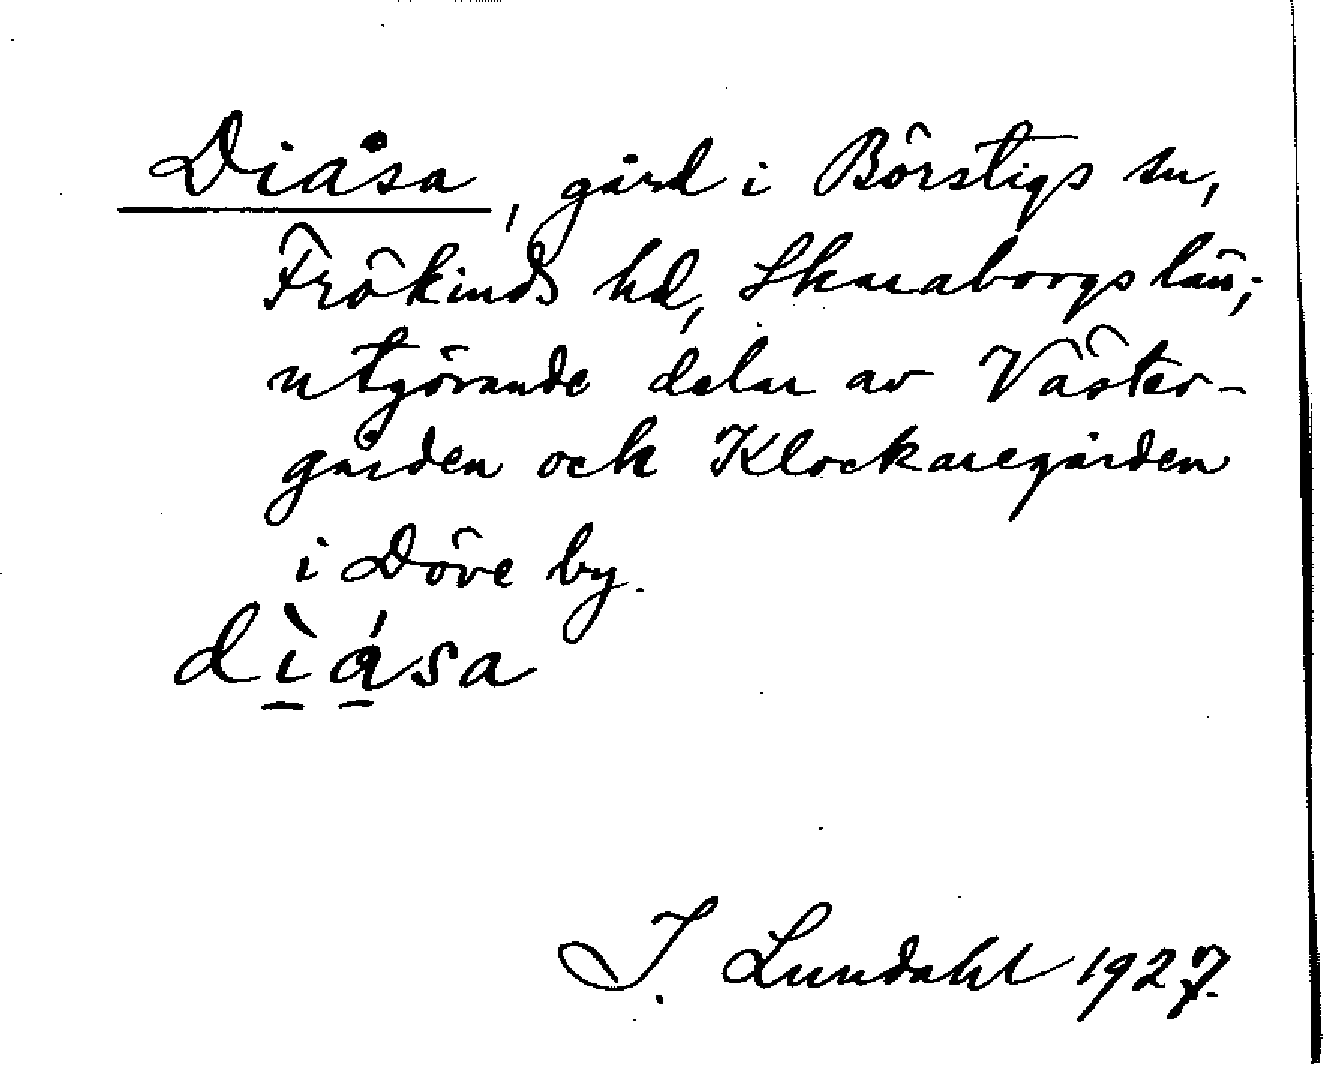 Diåsa, gård i Börstigs sn,
Frökinds hd, Skaraborgs län;
utgörande delar av Väster-
gården och Klockaregården
i Döve by.
dìása
I. Lundahl 1927.